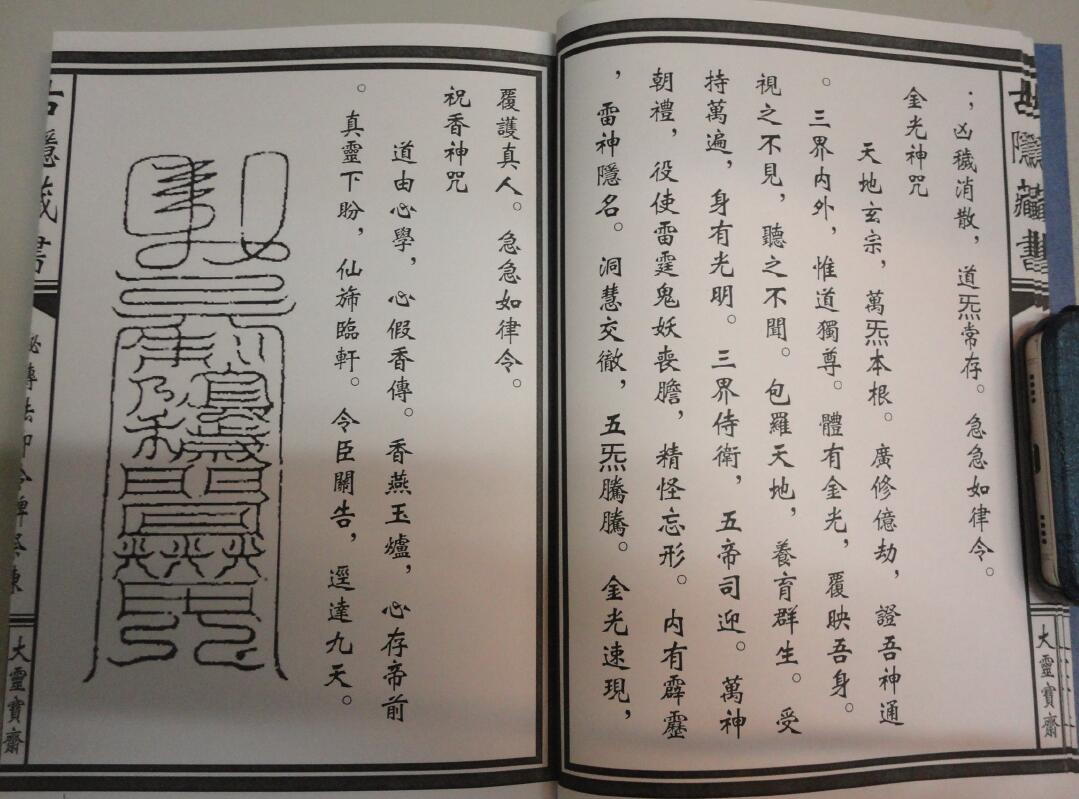 ；凶穢消散，道炁常存。急急如律令。
金光神咒
天地玄宗，萬炁本根。廣修億劫，證吾神通
。三界內外，惟道獨尊。體有金光，覆映吾身。
視之不見，聽之不聞。包羅天地，養育群生。受
持萬遍，身有光明。三界侍衛，五帝司迎。萬神
朝禮，役使雷霆鬼妖喪膽，精怪忘形。內有霹靂
，雷神隱名。洞慧交徹，五炁騰騰。金光速現，
覆護真人。急急如律令。
祝香神咒
道由心學，心假香傳。香燕玉爐，心存帝前
。真靈下盼，仙旆臨軒。令臣關告，逕達九天。
大靈寶齋
大靈寶齋